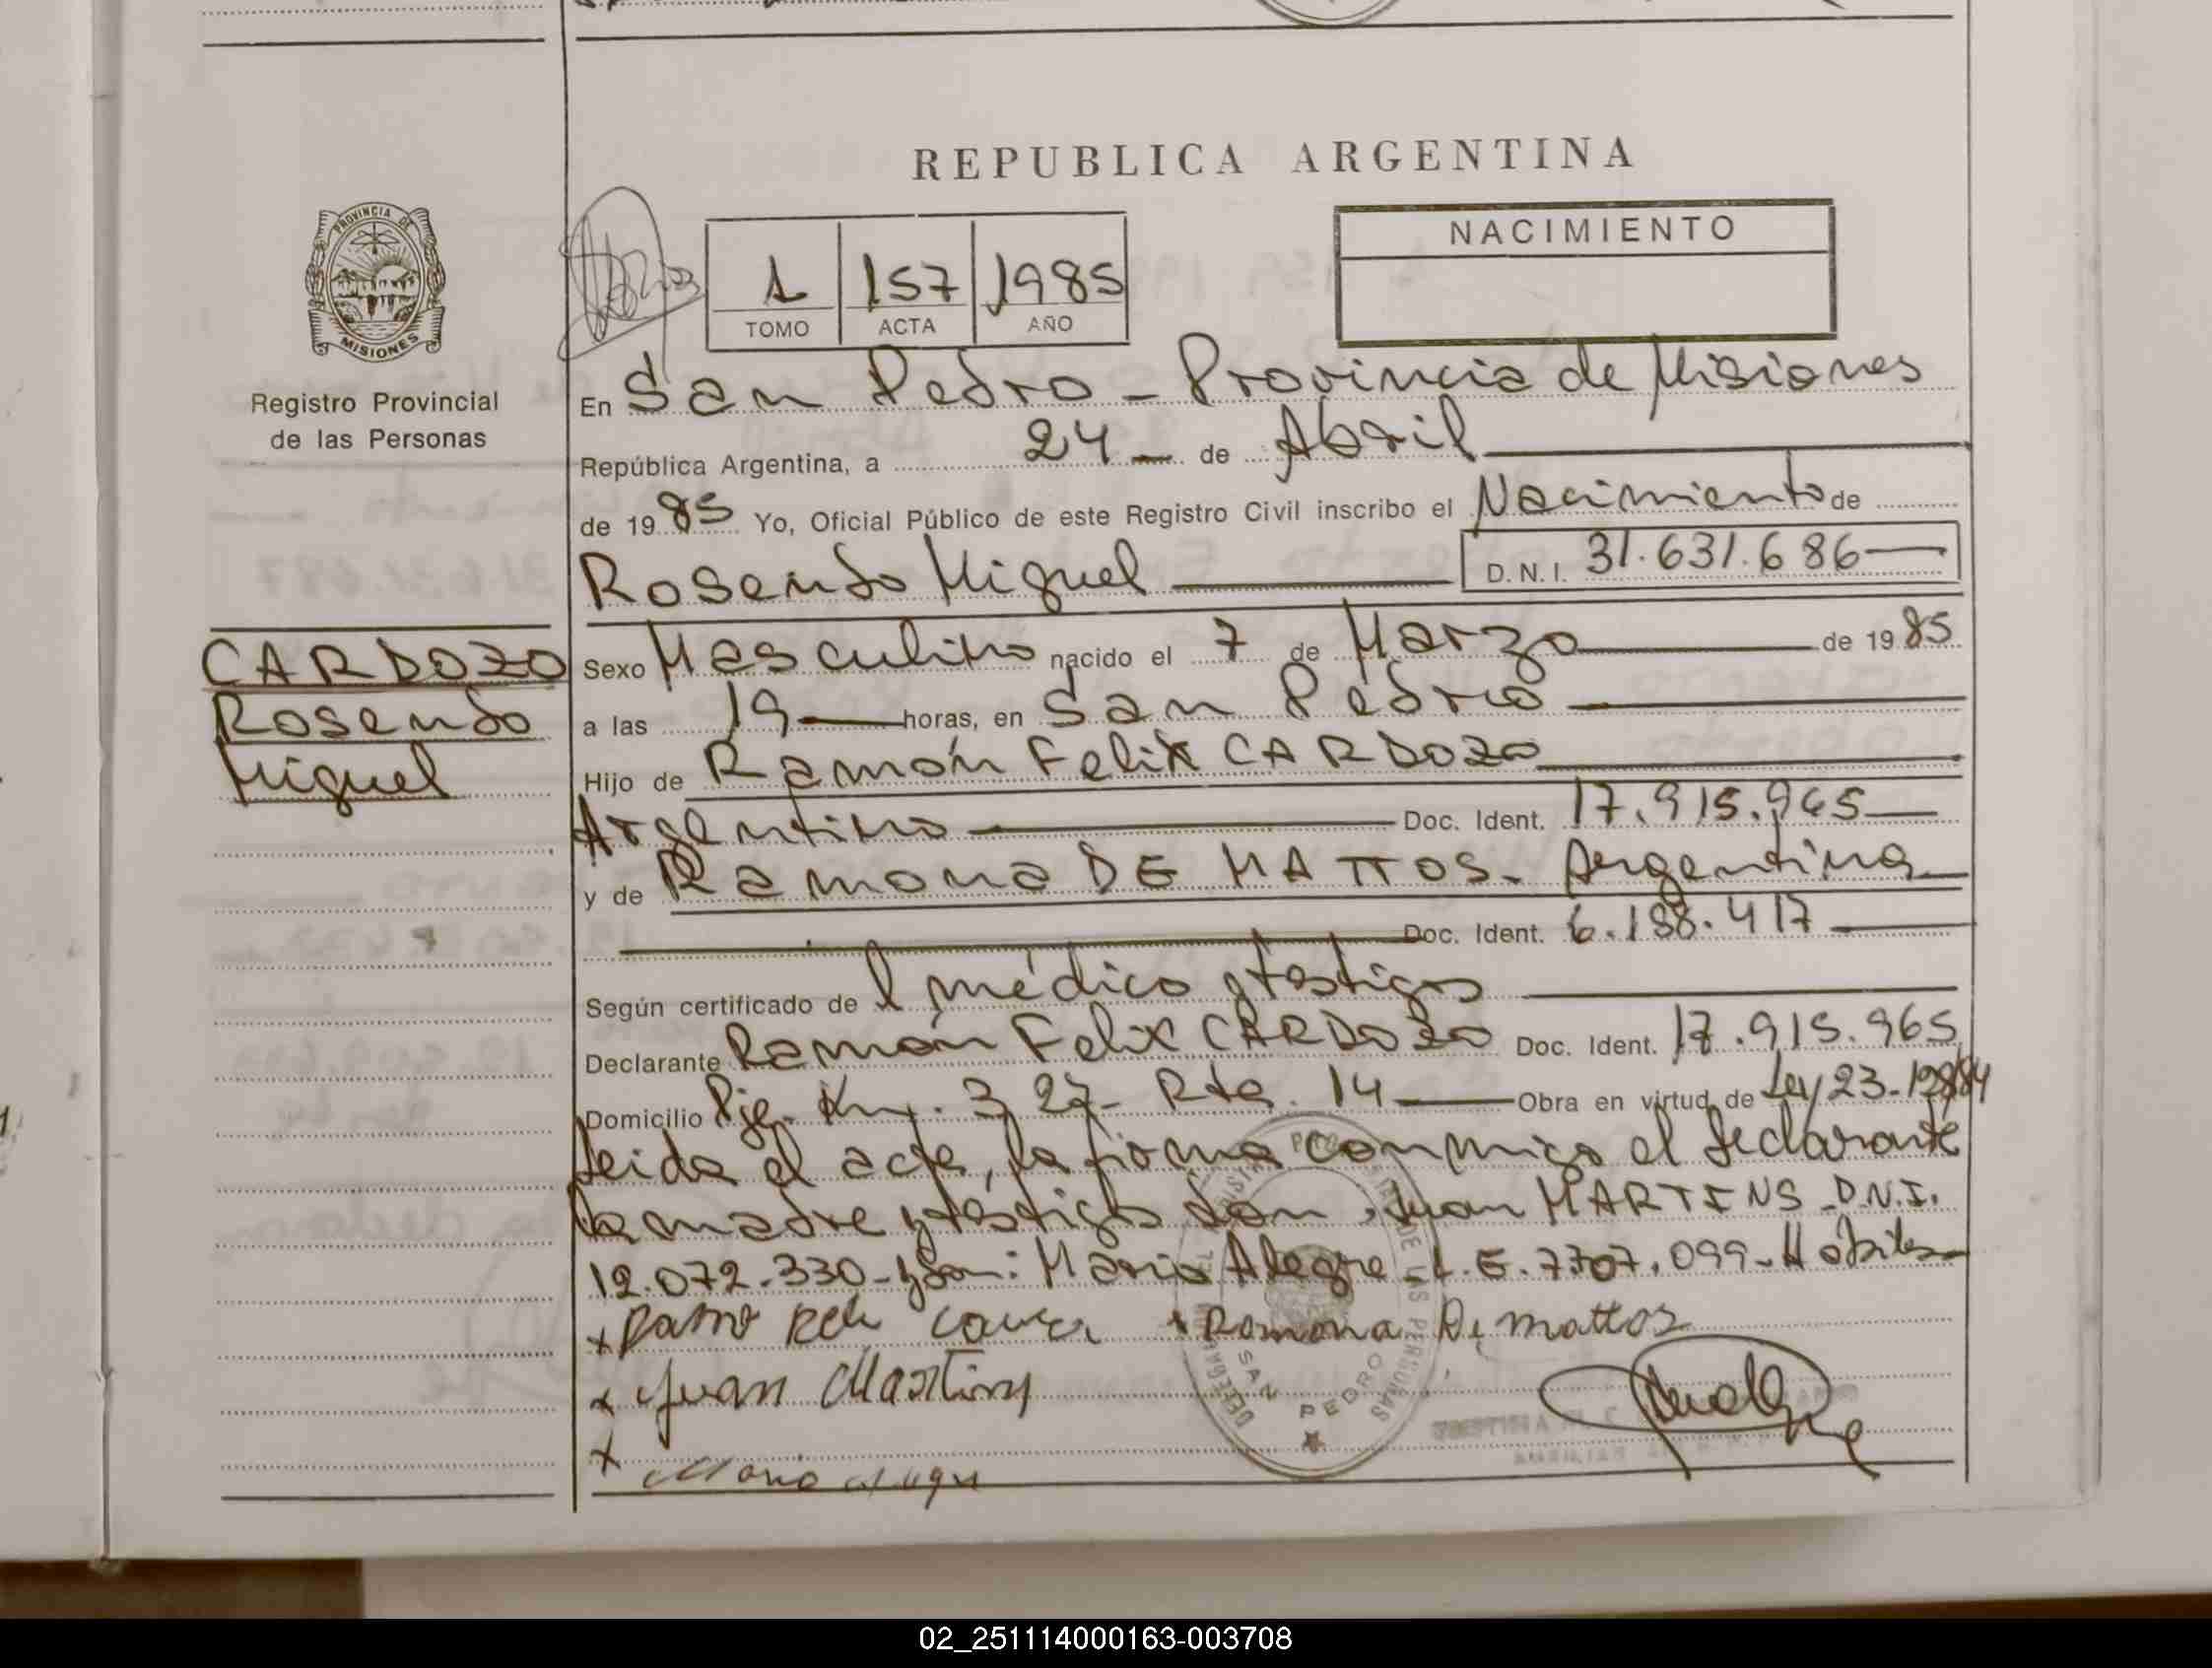 REPUBLICA ARGENTINA
PROVINCIA DE
MISIONES
Registro Provincial
de las Personas
1 157 1985
TOMO ACTA AÑO
NACIMIENTO
En San Pedro - Provincia de Misiones
República Argentina, a 24 de Abril
de 1985 Yo, Oficial Público de este Registro Civil inscribo el Nacimiento de
Rosendo Miguel D.N.I. 31.631.686
CARDOZO
Rosendo
Miguel
Sexo Masculino nacido el 7 de Marzo de 1985
a las 19 horas, en San Pedro
Hijo de Ramón Felix CARDOZO
Argentino Doc. Ident. 17.915.965
y de Ramona DE MATTOS - Argentina
Doc. Ident. 6.188.417
Según certificado de l médico y testigos
Declarante Ramón Felix CARDOZO Doc. Ident. 17.915.965
Domicilio Pje. Km. 327 - Rta. 14 Obra en virtud de Ley 23.
Leida el acta, la firma conmigo el declarante
la madre y testigos don, Juan MARTINS - D.N.I.
12.072.330 - y don: Mario Alegre - L.E. 7.707.099 - Hábiles
x Ramona De mattos
x Juan Martins
x Mario
SAN PEDRO
02_251114000163-003708